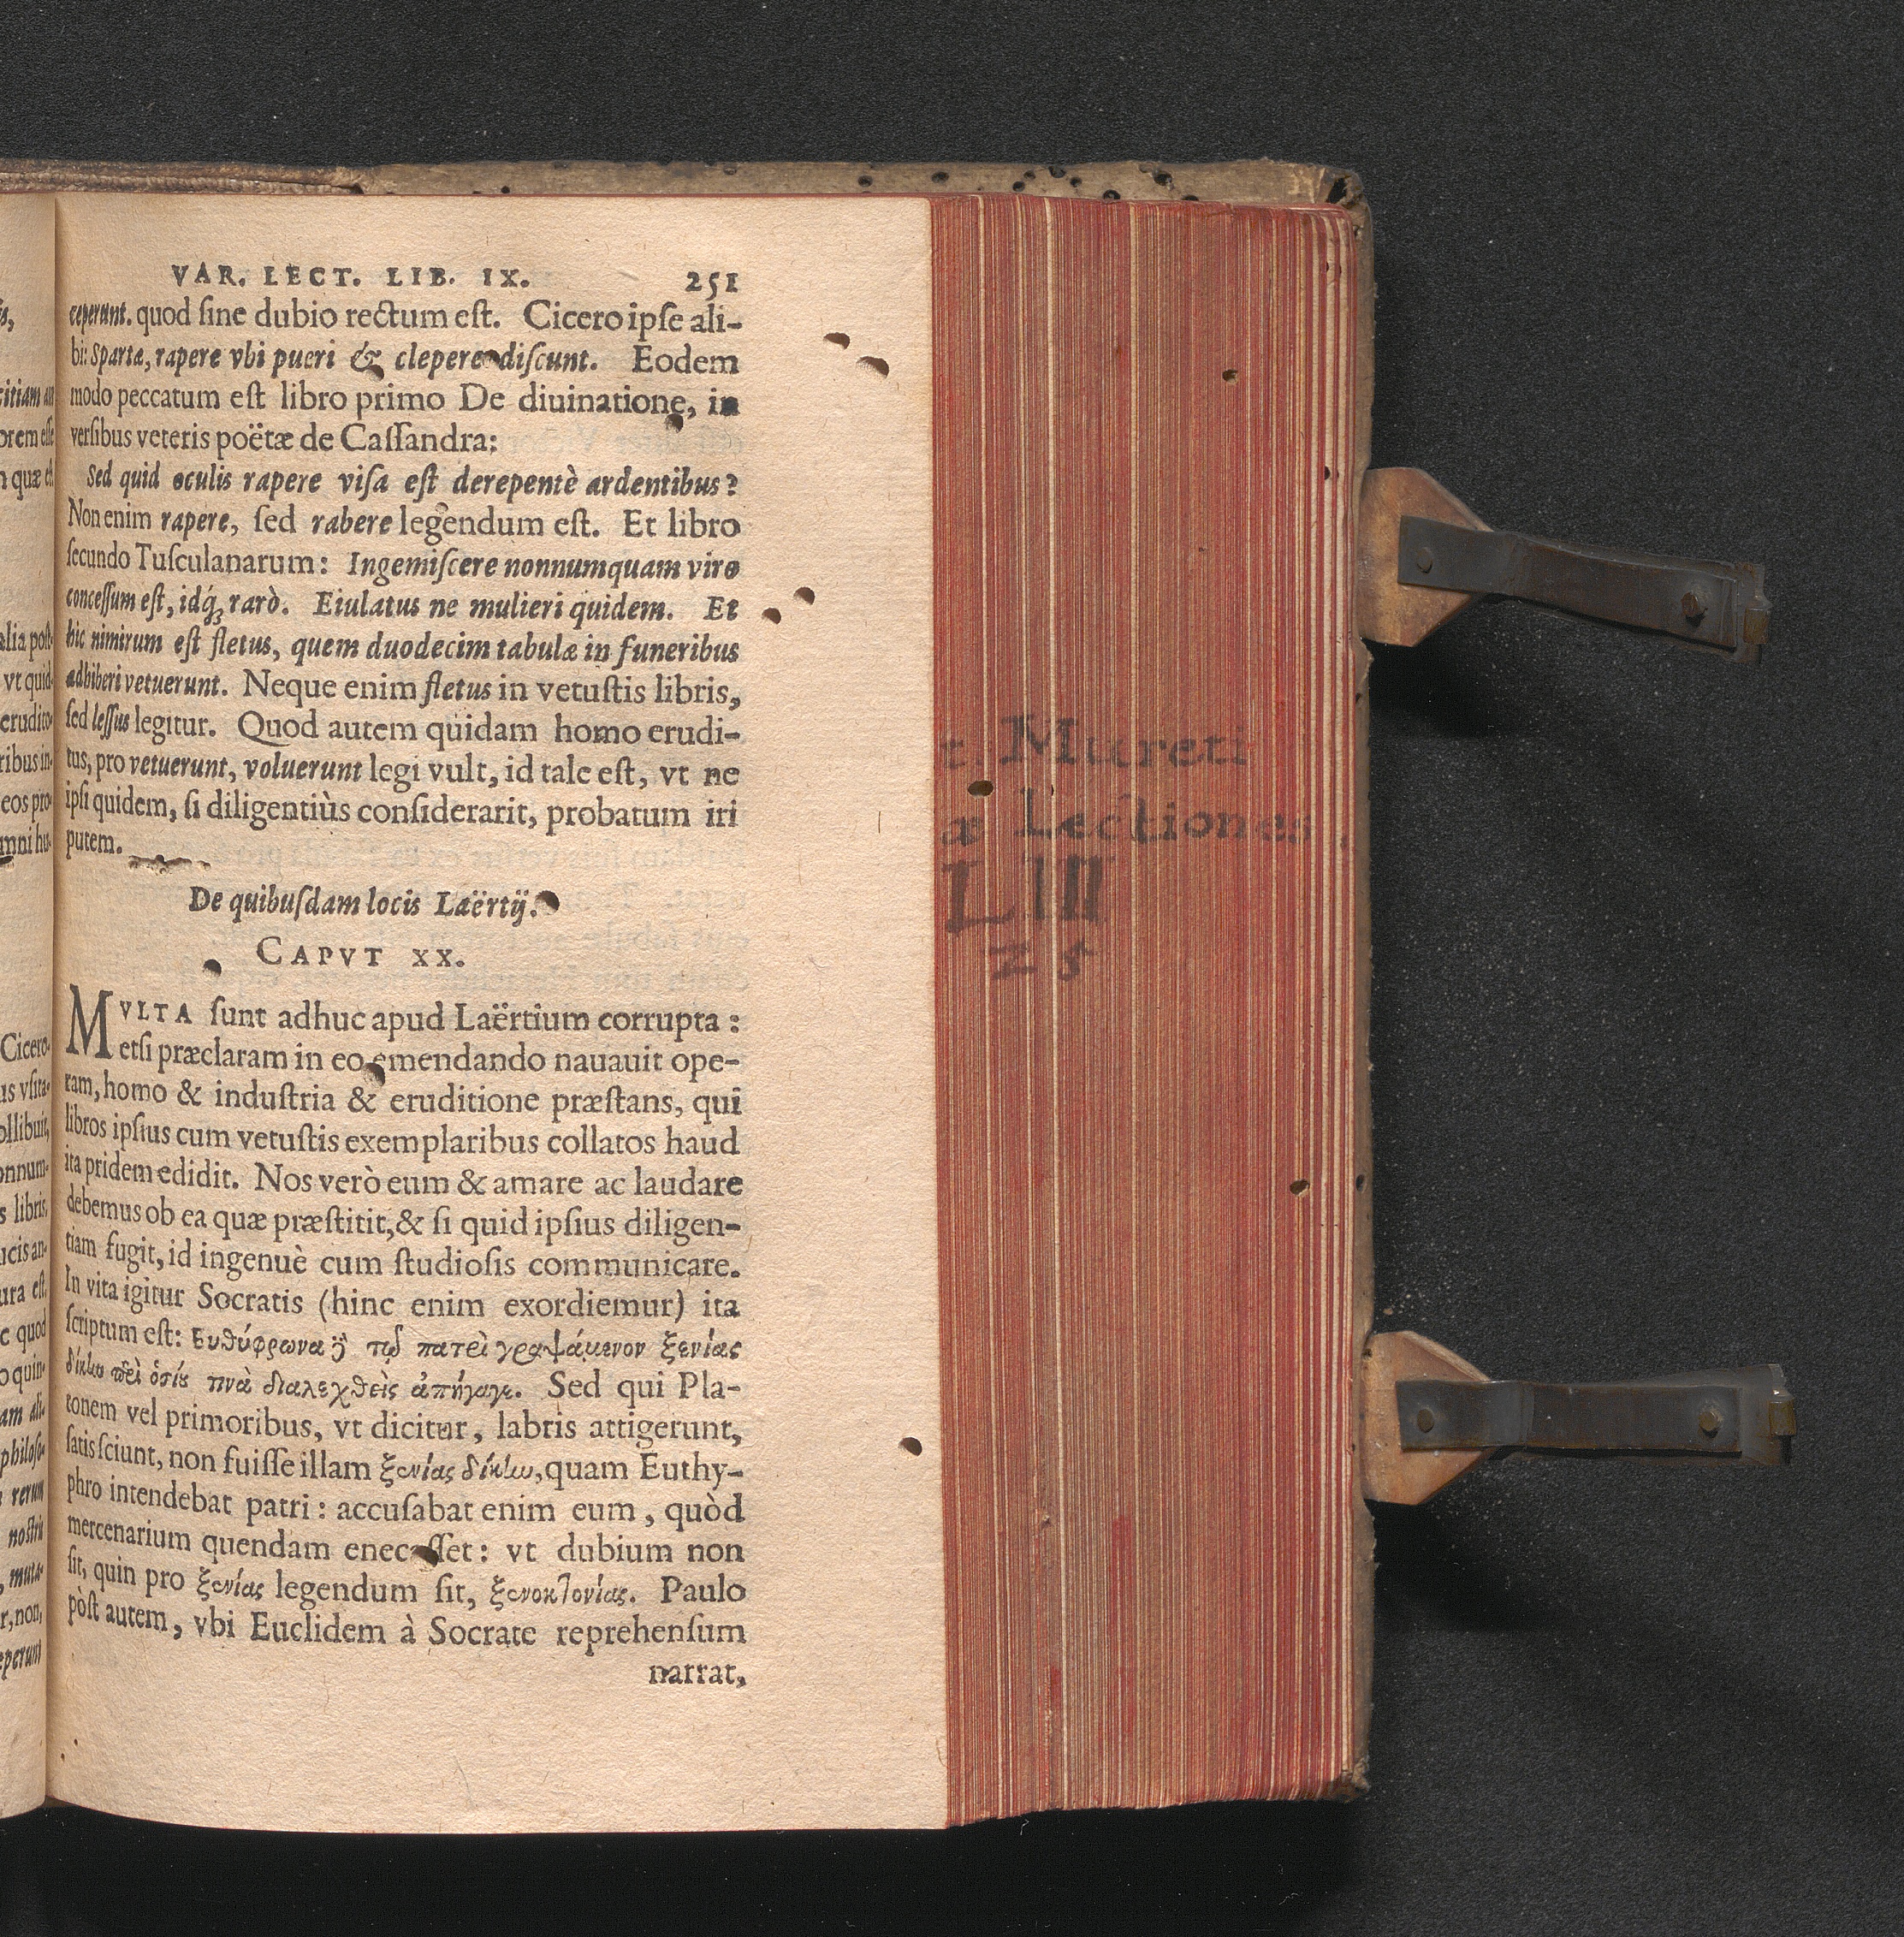 VAR. LECT. LIB. IX. 251
ceperunt. quod ſine dubio rectum eſt. Cicero ipſe ali-
bi: Spartæ, rapere vbi pueri & clepere diſcunt. Eodem
modo peccatum eſt libro primo De diuinatione, in
verſibus veteris poëtæ de Caſſandra:
Sed quid oculis rapere viſa eſt derepentè ardentibus?
Non enim rapere, ſed rabere legendum eſt. Et libro
ſecundo Tuſculanarum: Ingemiſcere nonnumquam viro
conceſſum eſt, idq́; rarò. Eiulatus ne mulieri quidem. Et
hic nimirum eſt fletus, quem duodecim tabulæ in funeribus
adhiberi vetuerunt. Neque enim fletus in vetuſtis libris,
ſed leſſus legitur. Quod autem quidam homo erudi-
tus, pro vetuerunt, voluerunt legi vult, id tale eſt, vt ne
ipſi quidem, ſi diligentiùs conſiderarit, probatum iri
putem.
De quibuſdam locis Laërtij.
CAPVT XX.
MVLTA ſunt adhuc apud Laërtium corrupta:
etſi præclaram in eo emendando nauauit ope-
ram, homo & induſtria & eruditione præſtans, qui
libros ipſius cum vetuſtis exemplaribus collatos haud
ita pridem edidit. Nos verò eum & amare ac laudare
debemus ob ea quæ præſtitit, & ſi quid ipſius diligen-
tiam fugit, id ingenuè cum ſtudioſis communicare.
In vita igitur Socratis (hinc enim exordiemur) ita
ſcriptum eſt: Ευθύφρωνα ȣ̈ τῷ πατρὶ γραψάμενον ξενίας
δίκην περὶ ὁσίȣ τινὰ διαλεχθεὶς ἀπήγαγε. Sed qui Pla-
tonem vel primoribus, vt dicitur, labris attigerunt,
ſatis ſciunt, non fuiſſe illam ξενίας δίκην, quam Euthy-
phro intendebat patri: accuſabat enim eum, quòd
mercenarium quendam enecaſſet: vt dubium non
ſit, quin pro ξενίας legendum ſit, ξενοκτονίας. Paulo
pòſt autem, vbi Euclidem à Socrate reprehenſum
narrat,
Mureti
æ Lectiones
LIII
25